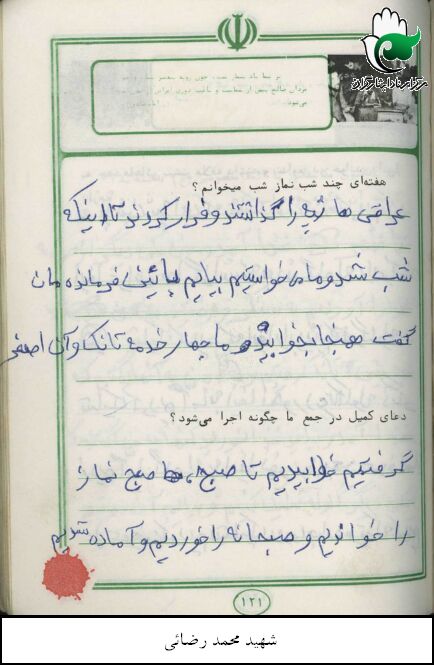 مرکز اسناد ایثارگران
هفته‌ای چند شب نماز شب میخوانم؟
عراقی ها تپه را گذاشتند و فرار کردند تا اینکه
شب شد و ما می خواستیم بیایم پائین فرمانده مان
گفت همینجا بخوابید و ما چهار خدمه تانک و آن اصغر
دعای کمیل در جمع ما چگونه اجرا می‌شود؟
گرفتیم خوابیدیم تا صبح، صبح نماز
را خواندیم و صبحانه را خوردیم و آماده شدیم
۱۲۱
شهید محمد رضائی